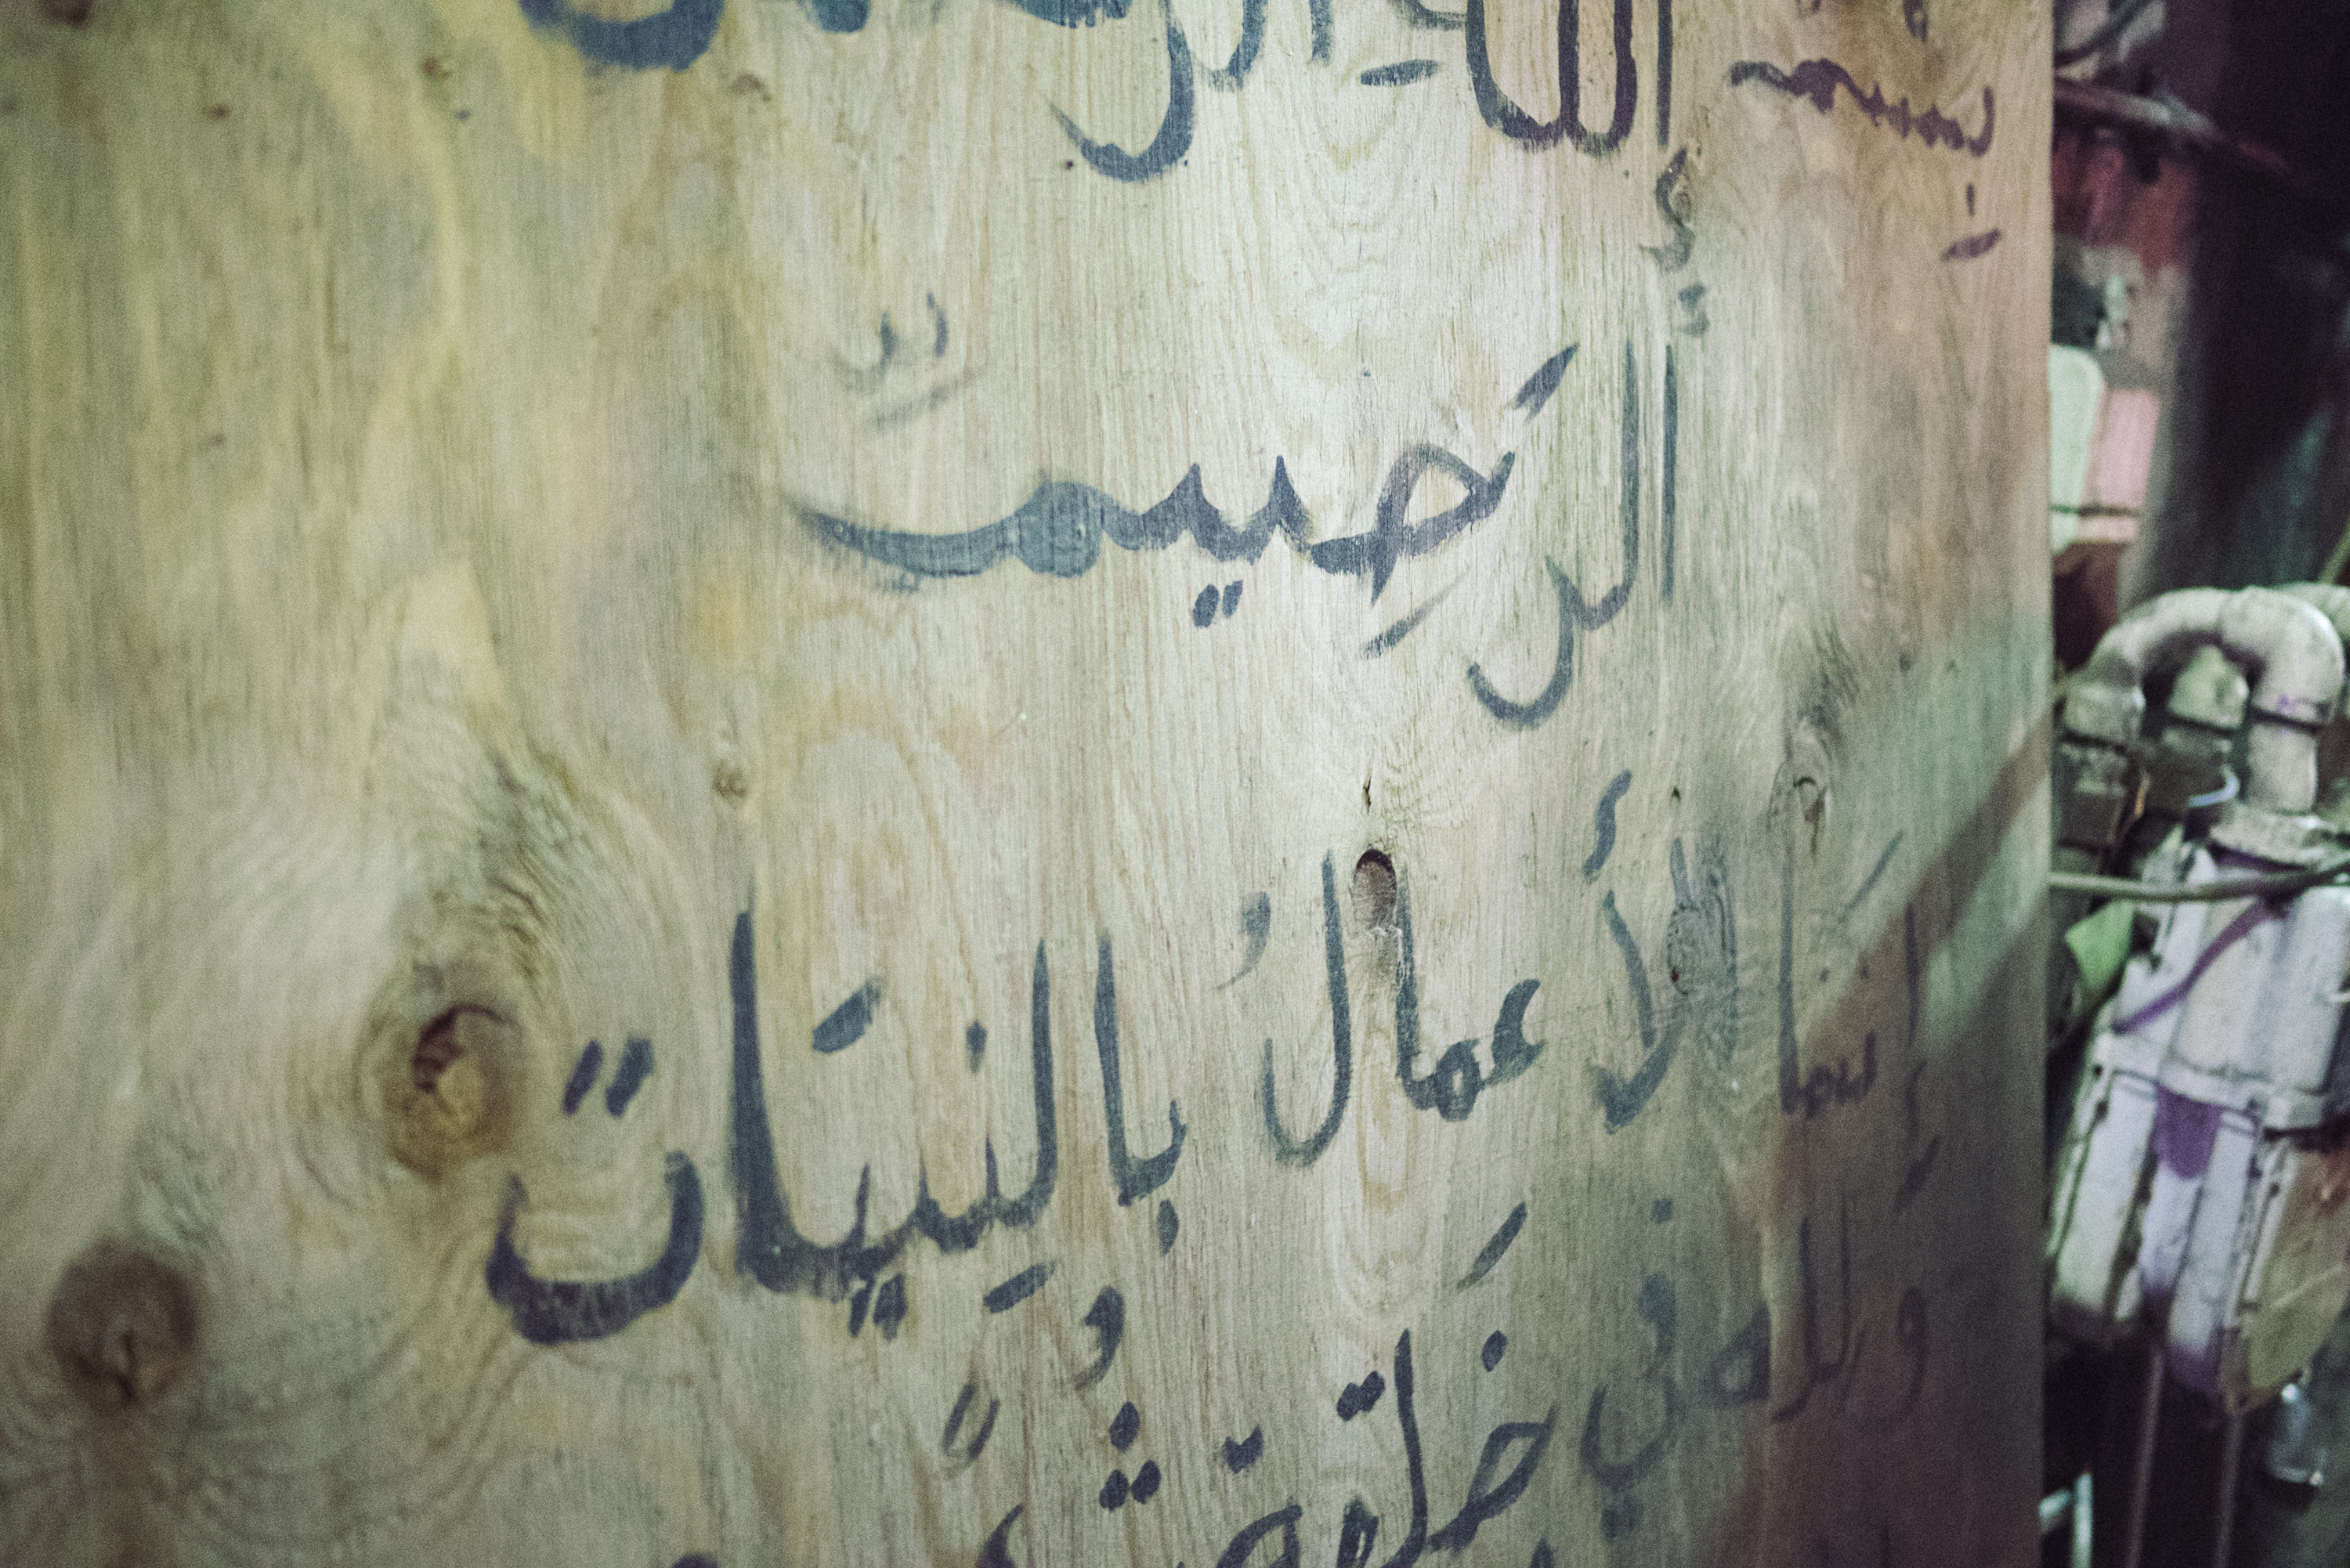 بِسمِ اللهِ الر
ألرَحِيمّ
إنَما الأعمالُ بِالنِيَات
وَللهِ في خَلقهِ شُ